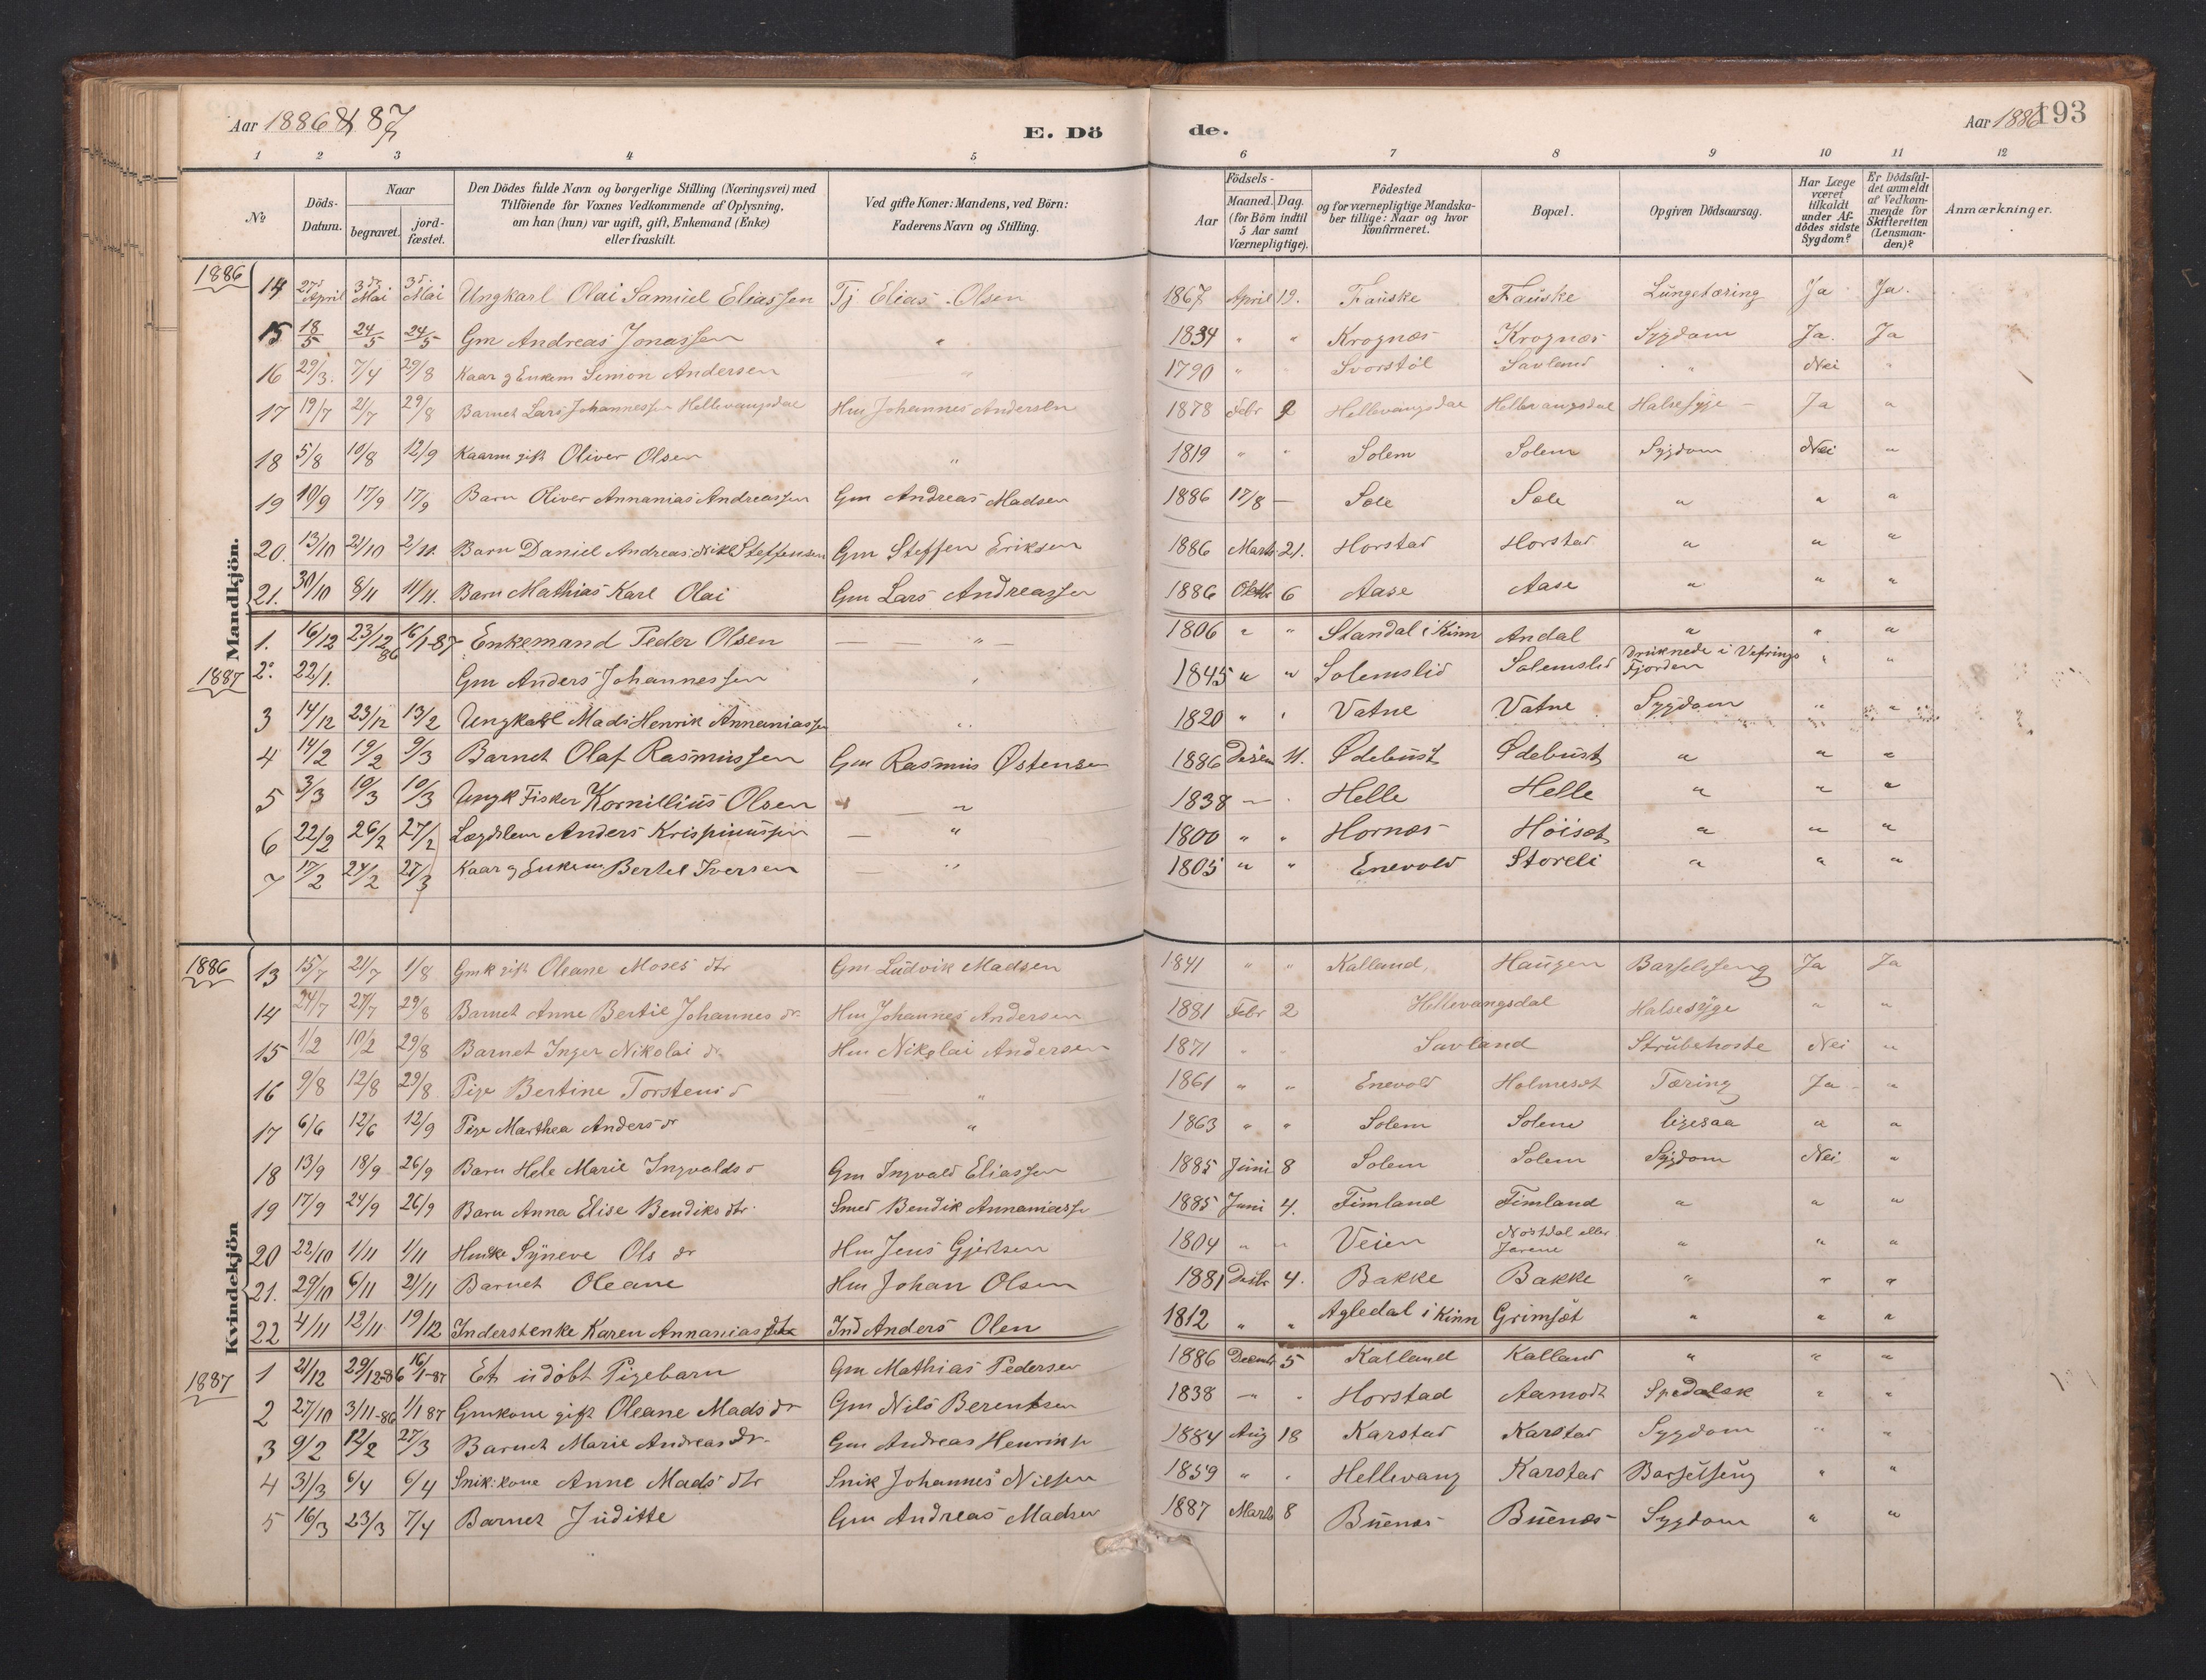 Aar 1886 & 87
E. Dö
de.
Aar 1886
193
1 2 3 4 5 6 7 8 9 10 11 12
No
Döds-Datum.
Naar
begravet.
jordfæstet.
Den Dödes fulde Navn og borgerlige Stilling (Næringsvei) med
Tilföiende for Voxnes Vedkommende af Oplysning,
om han (hun) var ugift, gift, Enkemand (Enke)
eller fraskilt.
Ved gifte Koner: Mandens, ved Börn:
Faderens Navn og Stilling.
Födsels-
Aar
Maaned. Dag.
(for Börn indtil
5 Aar samt
Værnepligtige).
Födested
og for værnepligtige Mandska-
ber tillige: Naar og hvor
Konfirmeret.
Bopæl.
Opgiven Dödsaarsag.
Har Læge
været
tilkaldt
under Af-
dödes sidste
Sygdom?
Er Dödsfal-
det anmeldt
af Vedkom-
mende for
Skifteretten
(Lensman-
den)?
Anmærkninger.
Mandkjön.
1886
14 27 April 3 Mai 3 Mai Ungkarl Olai Samuel Eliassen Tj Elias Olsen 1867 April 19. Fauske Fauske Lungetæring Ja Ja.
15 18/5 24/5 24/5 Gm Andreas Jonassen " 1834 " " Krognæs Krognæs Sygdom Ja. Ja
16 29/3. 7/4 29/8 Kaar og Enkem Simon Andersen " 1790 " Svorstøl Savland " Nei "
17 19/7 21/7 29/8 Barnet Lars Johannessen Hellevangsdal Hm Johannes Andersen 1878 Febr 2 Hellevangsdal Hellevangsdal Halsesyge Ja "
18 5/8 10/8 12/9 Kaarm gift Oliver Olsen " 1819 " " Solem Solem Sygdom Nei "
19 10/9 17/9 17/9 Barn Oliver Annanias Andreassen Gm Andreas Madsen 1886 17/8 — Sole Sole " " "
20. 13/10 21/10 2/11. Barn Daniel Andreas Nikl Steffensen Gm Steffen Eriksen 1886 Marts 21. Horstad Horstad " " "
21. 30/10 8/11 11/11. Barn Mathias Karl Olai Gm Lars Andreassen 1886 Oktbr 6 Aase Aase " " "
1. 16/12 23/12 86 16/1-87 Enkemand Peder Olsen " 1806 " " Standal i Kinn Andal " " "
1887 2. 22/1. Gm Anders Johannessen " 1845 " " Solemslid Solemslid Druknede i Vefrings Fjorden " "
3 14/12 23/12 13/2 Ungkarl Mads Henrik Annaniassen " 1820 " " Vatne Vatne Sygdom " "
4 14/2 19/2 9/3 Barnet Olaf Rasmussen Gm Rasmus Østensen 1886 Desem 11. Ødebust Ødebust " " "
5 3/3 10/3 10/3 Ungk Fisker Kornillius Olsen " 1838 — " Helle Helle " " "
6 22/2 26/2 27/2 Lægdslem Anders Krispinussen — " 1800 " " Hornæs Høiset " " "
7 17/2 24/2 27/3 Kaar og Enkem Bertel Iversen — " 1805 " " Enevold Storeli " " "
Kvindekjön
1886
13 15/7 21/7 1/8 Gmk gift Oleane Moses dtr Gm Ludvik Madsen 1841 " " Kalland, Haugen Barselseng Ja Ja
14 24/7 27/7 29/8 Barnet Anne Bertie Johannes dr Hm Johannes Andersen 1881 Febr 2 Hellevangsdal Halsesyge " "
15 1/2 10/2 29/8 Barnet Inger Nikolai dr Hm Nikolai Andersen 1871 " " Savland Strubehoste Nei "
16 9/8 12/8 29/8 Pige Bertine Torstens d " 1861 " " Enevold Holmeset Tæring Ja "
17 6/6 12/6 12/9 Pige Marthea Anders dr " 1863 " " Solem Solem ligesaa " "
18 13/9 18/9 26/9 Barn Hele Marie Ingvalds d Gm Ingvald Eliassen 1885 Juni 8 Solem Solem Sygdom Nei "
19 17/9 24/9 26/9 Barn Anna Elise Bendiks dtr Smed Bendik Annaniass 1885 Juni 4. Fimland Fimland " " "
20 22/10 1/11 1/11 Huske Syneve Ols dr Hm Jens Gjertsen 1804 " " Veien Nostdal eller Jarene " " "
21. 29/10 6/11 21/11 Barnet Oleane Hm Johan Olsen 1881 Desbr 4. Bakke Bakke " " "
22 4/11 12/11 19/12 Inderstenke Karen Annanias dtr Ind Anders Olen 1812 " " Agledal i Kinn Grimset " " "
1887 1 21/12 29/12-86 16/1-87 Et udöbt Pigebarn Gm Mathias Pedersen 1886 Decemb 5 Kalland Kalland " " "
2 27/10 3/11-86 1/1 87 Gmkone gift Oleane Mads dr Gm Nils Berentsen 1838 — " Horstad Aamodt Spedalsk " "
3 9/2 12/2 27/3 Barnet Marie Andreas dr. Gm Andreas Henriks 1884 Aug 18 Karstad Karstad Sygdom " "
4 31/3 6/4 6/4 Snik: kone Anne Mads dtr Snik Johannes Nilsen 1859 " " Hellevang Karstad Barselseng " "
5 16/3 23/3 7/4 Barnet Juditte Gm Andreas Madsen 1887 Marts 8 Buenæs Buenæs Sygdom " "